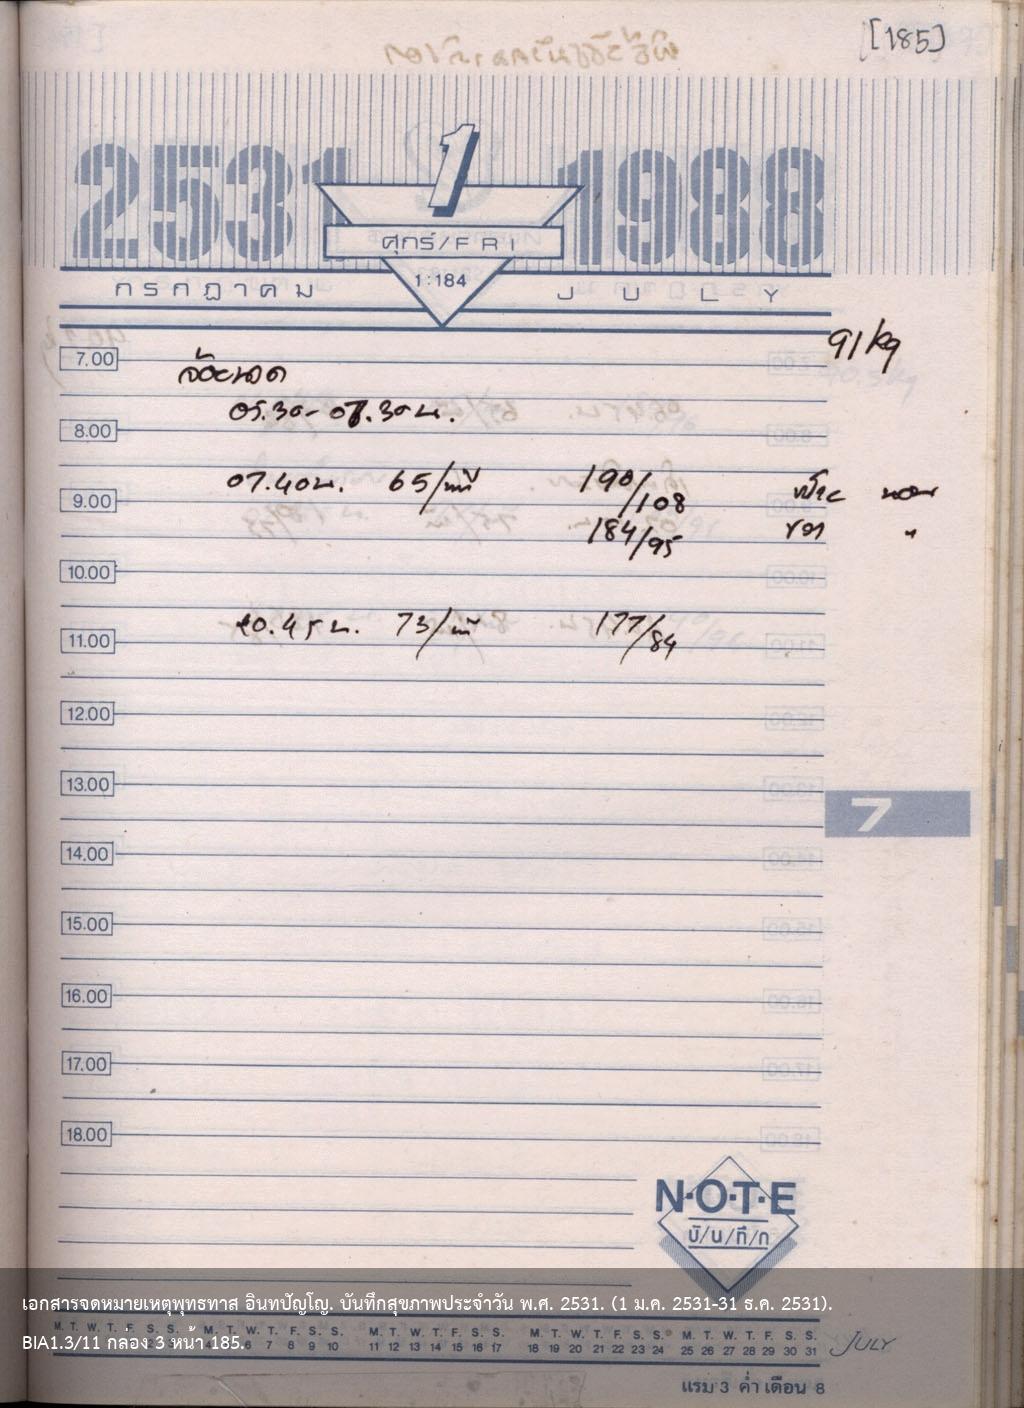 [185]
2531 1 1988
ศุกร์/FRI
1:184
กรกฎาคม JULY
91 kg
7.00
05.30-07.30น.
8.00
07.40น. 65/นาที 190/108 นอน
9.00
184/95 "
10.00
20.45น. 73/นาที 177/84
11.00
12.00
13.00
7
14.00
15.00
16.00
17.00
18.00
N·O·T·E
บั/น/ทึ/ก
เอกสารจดหมายเหตุพุทธทาส อินทปัญโญ. บันทึกสุขภาพประจำวัน พ.ศ. 2531. (1 ม.ค. 2531-31 ธ.ค. 2531).
M. T. W. T. F. S. S. M. T. W. T. F. S. S. M. T. W. T. F. S. S. M. T. W. T. F. S. S. M. T. W. T. F. S. S.
BIA1.3/11 กล่อง 3 หน้า 185. 6 7 8 9 10 11 12 13 14 15 16 17 18 19 20 21 22 23 24 25 26 27 28 29 30 31 JULY
แรม 3 ค่ำ เดือน 8